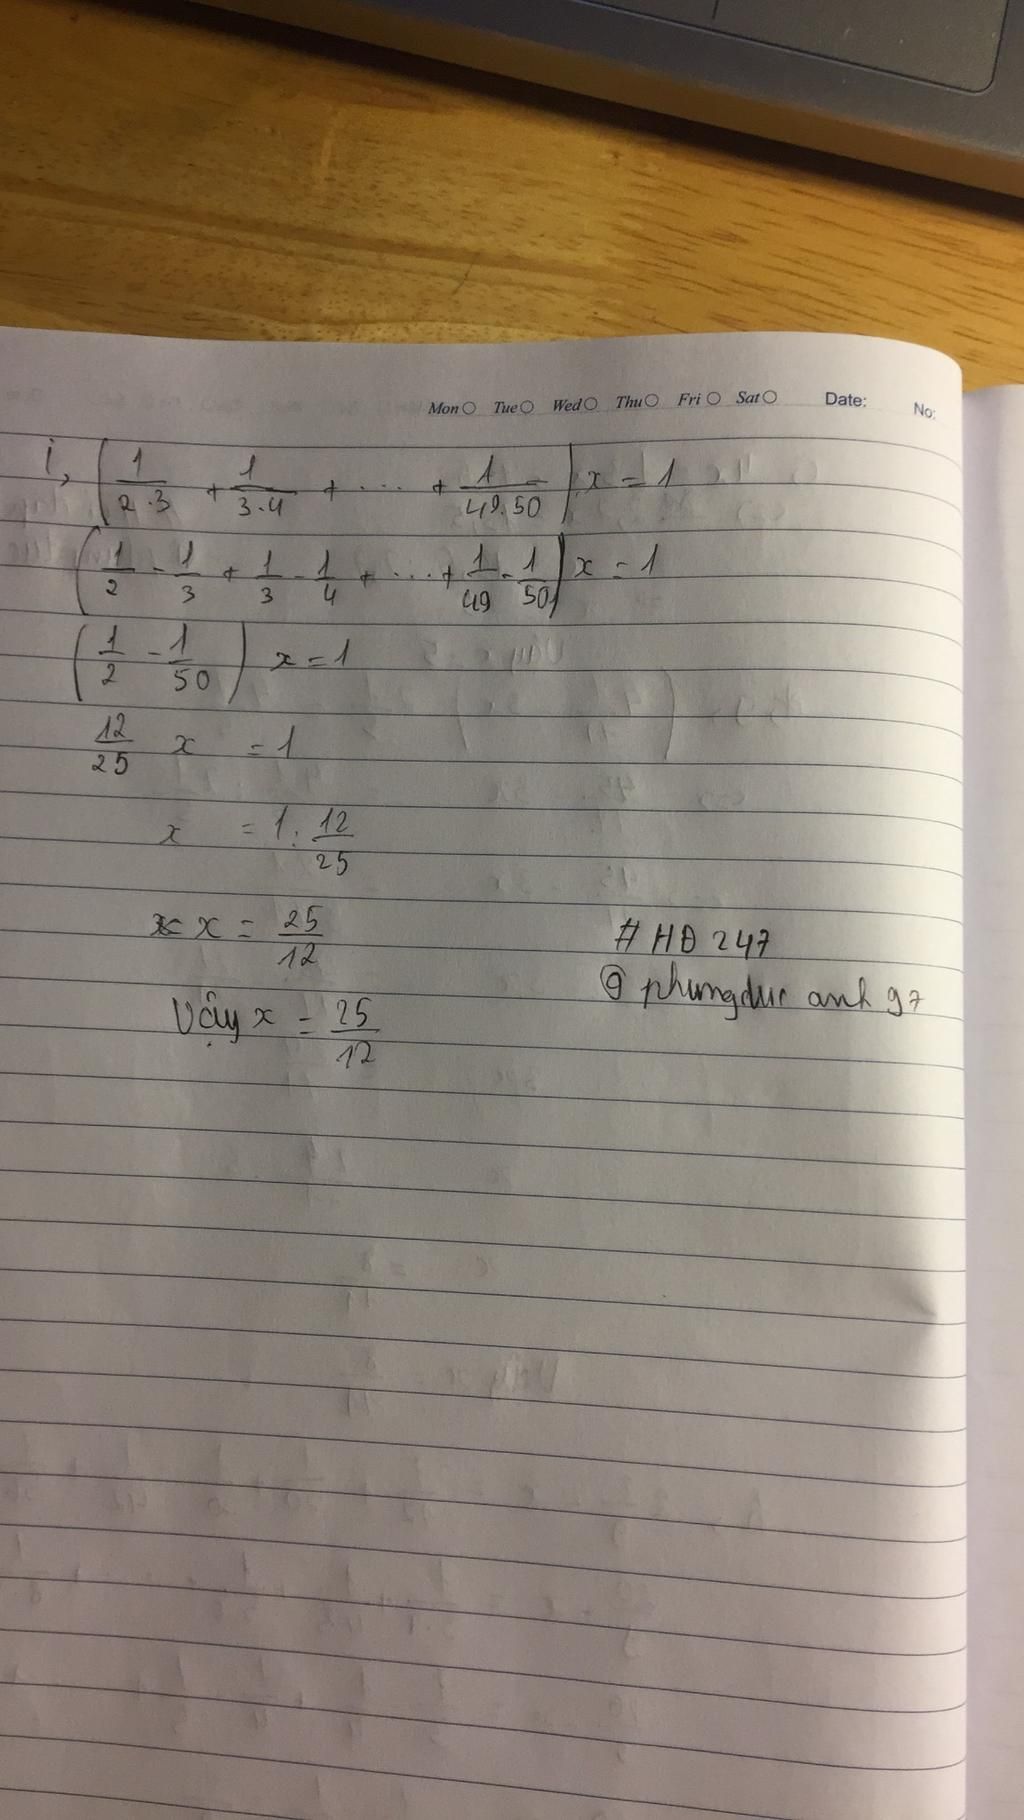 Mon Tue Wed Thu Fri Sat Date: No:
i, (1/2.3 + 1/3.4 + .... + 1/49.50) x = 1
(1/2 - 1/3 + 1/3 - 1/4 + ... + 1/49 - 1/50) x = 1
(1/2 - 1/50) x = 1
12/25 x = 1
x = 1 : 12/25
x = 25/12
# HĐ 247
Vậy x = 25/12
@ phungduc anh 97